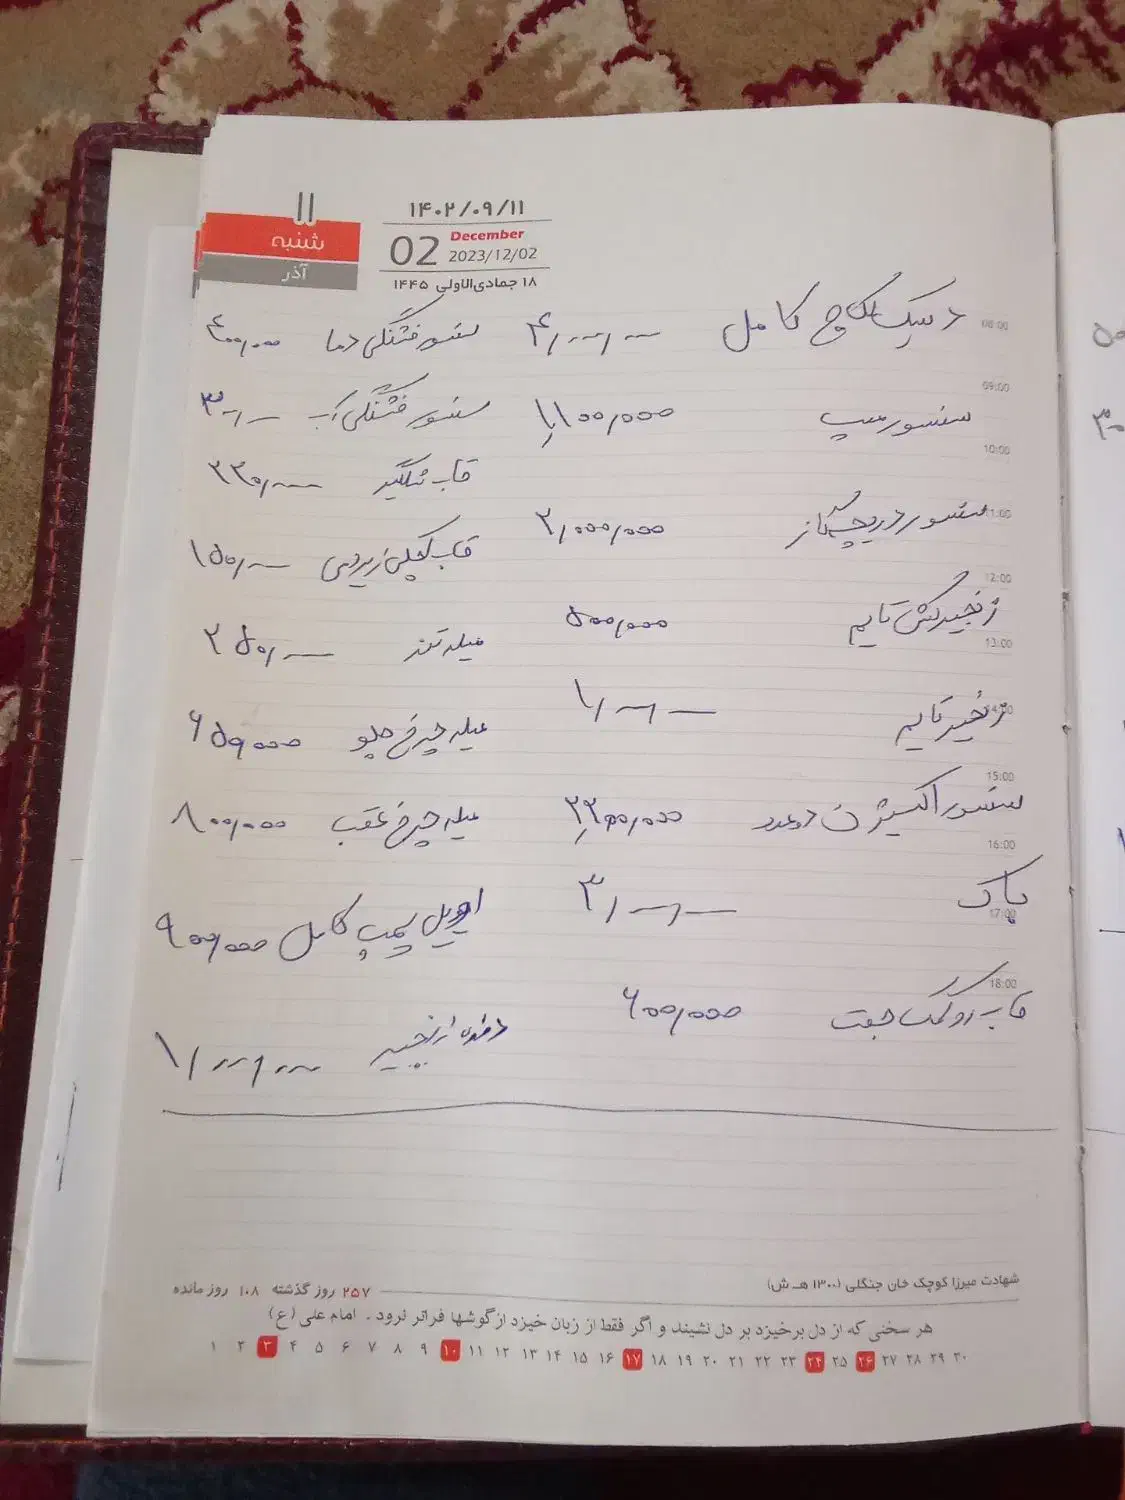 ۱۱
شنبه
آذر
۱۴۰۲/۰۹/۱۱
02 December
2023/12/02
۱۸ جمادی‌الاولی ۱۴۴۵
08:00
دیسک کلاچ کامل ۴/۰۰۰/۰۰۰
سنسور فشنگی دما ۴۰۰/۰۰۰
09:00
سنسور مپ ۱/۱۰۰/۰۰۰
سنسور فشنگی آب ۳۰۰/۰۰۰
10:00
قاب گلگیر ۲۲۰/۰۰۰
11:00
سنسور دریچه گاز ۲/۰۰۰/۰۰۰
قاب ۱۵۰/۰۰۰
12:00
زنجیر کش تایم ۵۰۰/۰۰۰
میله تند ۲۵۰/۰۰۰
13:00
زنجیر تایم ۱/۰۰۰/۰۰۰
میله چرخ جلو ۶۵۰/۰۰۰
15:00
سنسور اکسیژن دو عدد ۲/۲۰۰/۰۰۰
میله چرخ عقب ۸۰۰/۰۰۰
16:00
باک ۳/۰۰۰/۰۰۰
17:00
اویل پمپ کامل ۹۰۰/۰۰۰
18:00
قاب رو کمک جفت ۶۰۰/۰۰۰
۱/۰۰۰/۰۰۰
شهادت میرزا کوچک خان جنگلی (۱۳۰۰ هـ ش)
۲۵۷ روز گذشته ۱۰۸ روز مانده
هر سخنی که از دل برخیزد بر دل نشیند و اگر فقط از زبان خیزد از گوشها فراتر نرود . امام علی (ع)
۱ ۲ ۳ ۴ ۵ ۶ ۷ ۸ ۹ ۱۰ ۱۱ ۱۲ ۱۳ ۱۴ ۱۵ ۱۶ ۱۷ ۱۸ ۱۹ ۲۰ ۲۱ ۲۲ ۲۳ ۲۴ ۲۵ ۲۶ ۲۷ ۲۸ ۲۹ ۳۰